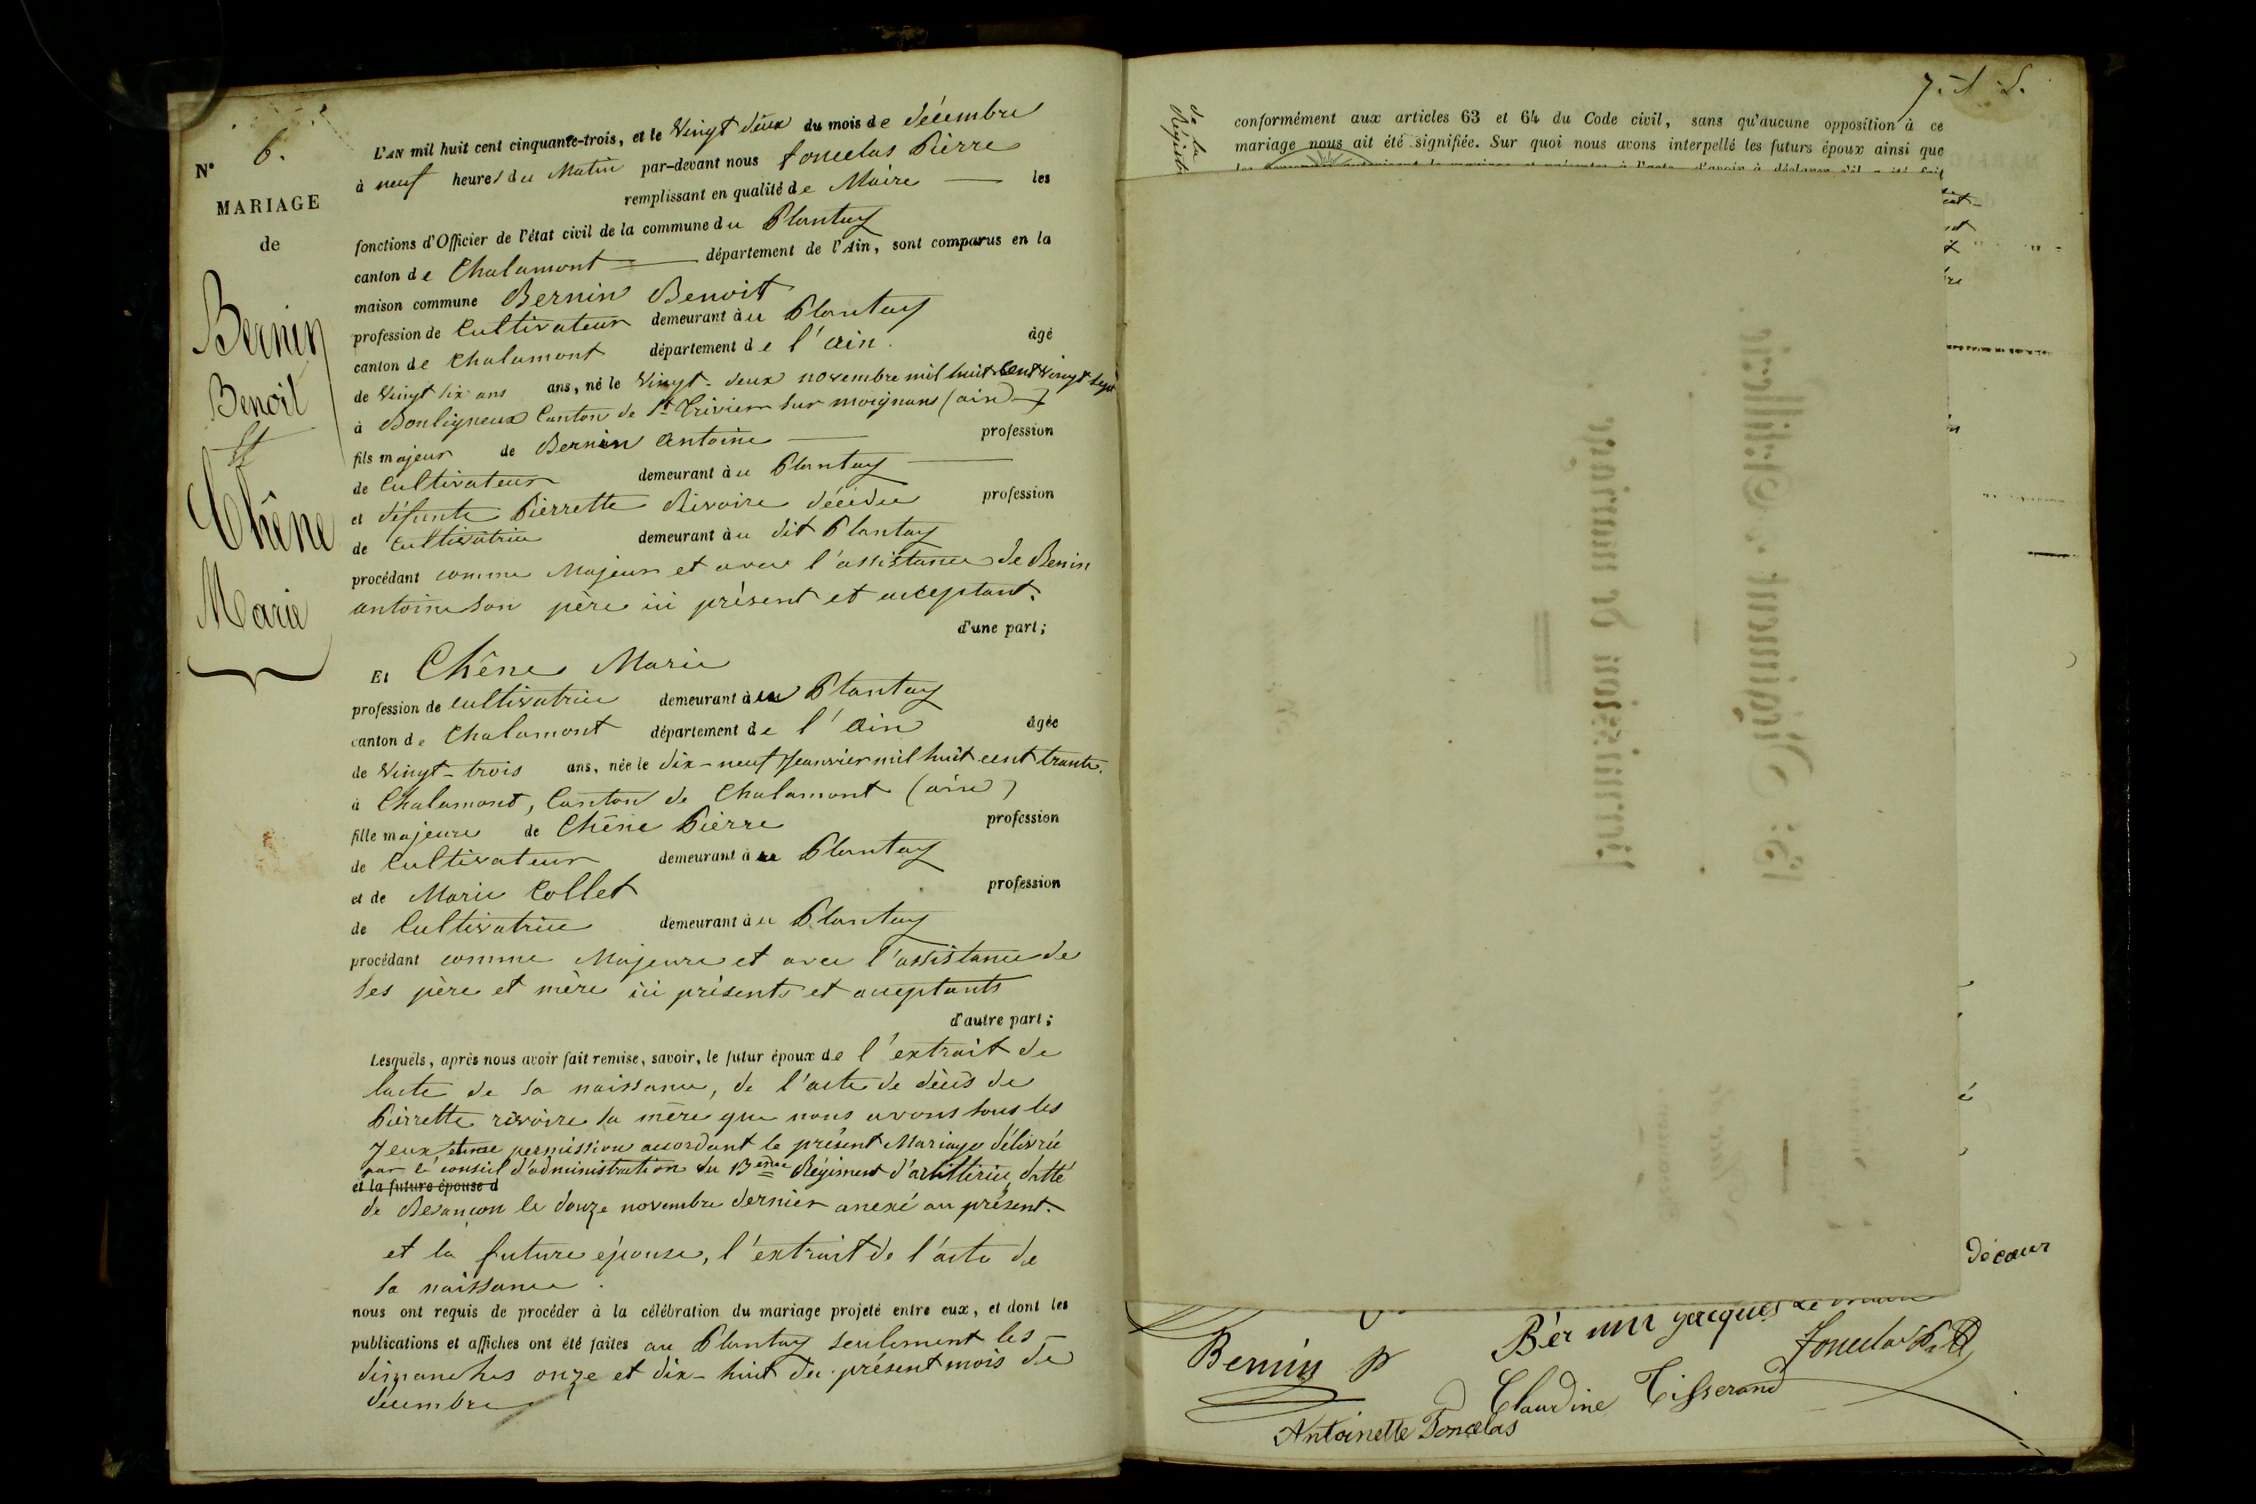 N° 6.
MARIAGE
de
Bernin
Benoit
et
Chêne
Marie
L'AN mil huit cent cinquante-trois, et le Vingt deux du mois de décembre
à neuf heures du Matin par-devant nous foncelas Pierre
remplissant en qualité de Maire les
fonctions d'Officier de l'état civil de la commune du Plantay
canton de Chalamont département de l'Ain, sont comparus en la
maison commune Bernin Benoit
profession de Cultivateur demeurant àu Plantay
canton de Chalamont département de l'Ain. âgé
de Vingt six ans ans, né le Vingt-deux novembre mil huit Cent vingt sept
à Bouligneux Canton de St Trivier sur moignans (ain)
fils majeur de Bernin Antoine profession
de Cultivateur demeurant àu Plantay
et défunte Pierrette Rivoire décédée profession
de Cultivatrice demeurant àu dit Plantay
procédant comme Majeur et avec l'assistance de Benin
antoine son père ici présent et acceptant.
d'une part;
Et Chêne Marie
profession de cultivatrice demeurant àu Plantay
canton de Chalamont département de l'Ain âgée
de Vingt-trois ans, née le dix-neuf Jeanvier mil huit cent trante.
à Chalamont, Canton de Chalamont (ain)
fille majeure de Chêne Pierre profession
de Cultivateur demeurant àu Plantay
et de Marie Collet profession
de Cultivatrice demeurant àu Plantay
procédant comme Majeure et avec l'assistance de
ses père et mère ici présents et acceptants
d'autre part;
Lesquels, après nous avoir fait remise, savoir, le futur époux de l'extrait de
lacte de sa naissance, de l'acte de décès de
Pierrette rivoire sa mère que nous avons sous les
yeux et une permission accordant le présent Mariage délivrée
par le conseil d'administration du 13eme Régiment d'artillerie, datté
et la future épouse d
de Besançon le douze novembre dernier anexé au présent.
et la future épouse, l'extrait de l'acte de
sa naissance.
nous ont requis de procéder à la célébration du mariage projeté entre eux, et dont les
publications et affiches ont été faites au Plantay seulement les
dimanches onze et dix-huit du présent mois de
décembre
de la
conformément aux articles 63 et 64 du Code civil, sans qu'aucune opposition à ce
mariage nous ait été signifiée. Sur quoi nous avons interpellé les futurs époux ainsi que
13e Régiment d'Artillerie
Permission de mariage
Bernin jacques
Bernin p
Claudine Tisserand
Antoinette Foncelas